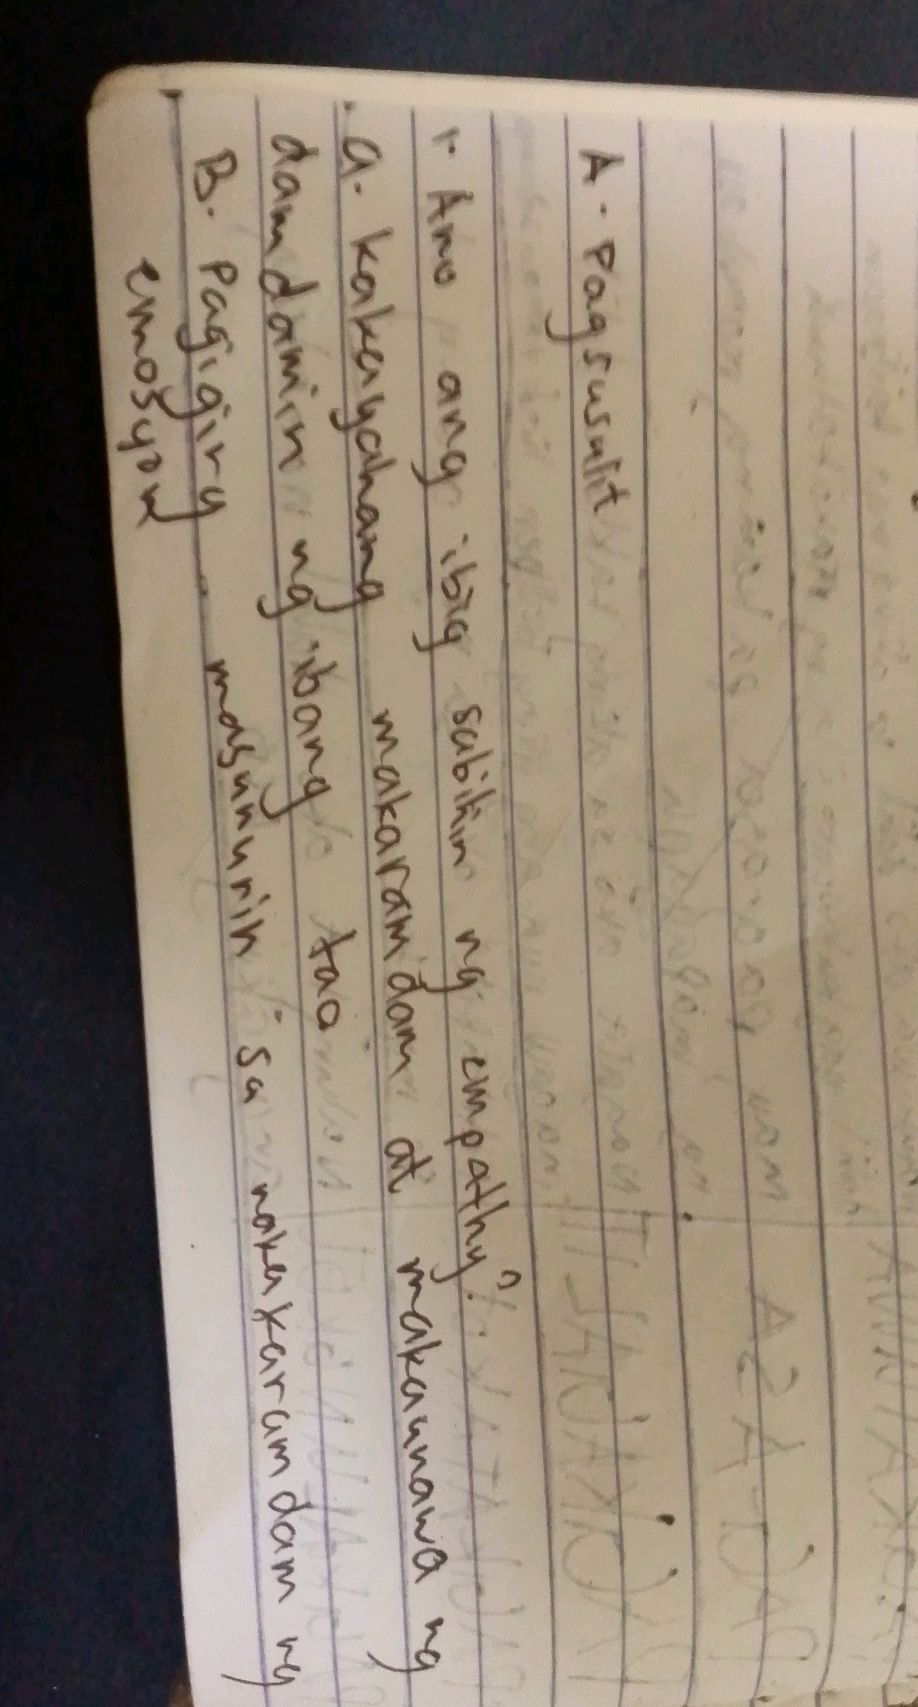 A. Pagsusulit
1. Ano ang ibig sabihin ng empathy?
a. kakayahang makaramdam at makaunawa ng
damdamin ng ibang tao
B. Pagiging masunurin sa nakakaramdam ng
emosyon